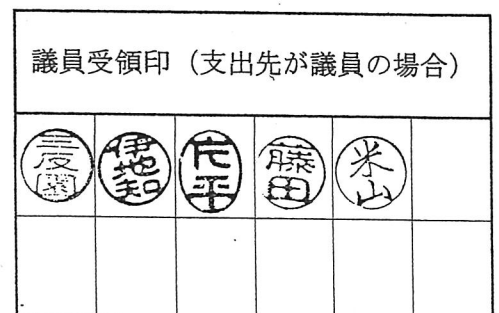 議員受領印（支出先が議員の場合）
三反園
伊地知
片平
藤田
米山